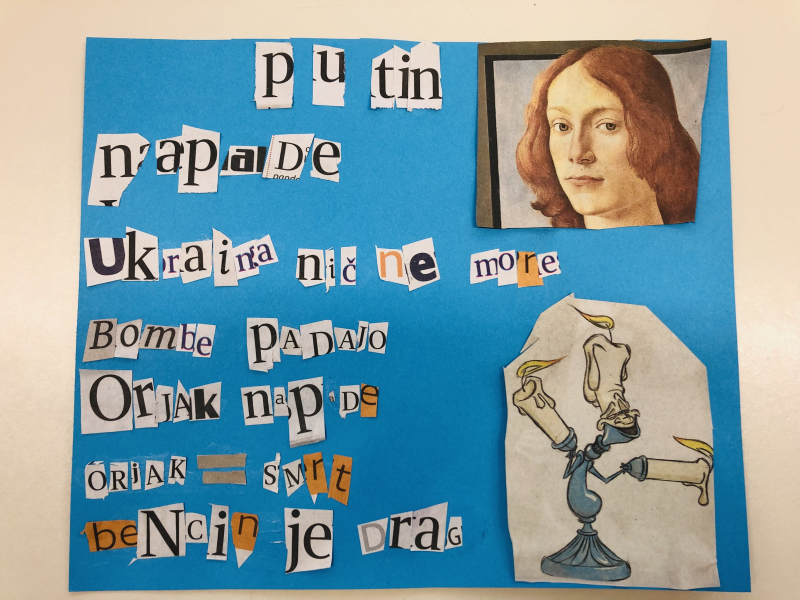 putin
napaDe
Ukraina nič ne more
Bombe pADAJO
OrJAk napDe
ORJAK = SMrt
beNcin je DraG